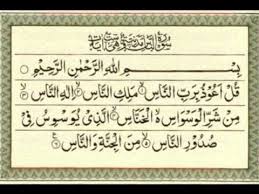 سُوْرَةُ النَّاسِ مَدَنِيَّةٌ وَّهِيَ سِتُّ اٰيَاتٍ
بِسْمِ اللهِ الرَّحْمٰنِ الرَّحِيْمِ
قُلْ اَعُوْذُ بِرَبِّ النَّاسِ ۙ مَلِكِ النَّاسِ ۙ اِلٰهِ النَّاسِ ۙ
مِنْ شَرِّ الْوَسْوَاسِ ۙ الْخَنَّاسِ ۙ الَّذِيْ يُوَسْوِسُ فِيْ
صُدُوْرِ النَّاسِ ۙ مِنَ الْجِنَّةِ وَالنَّاسِ